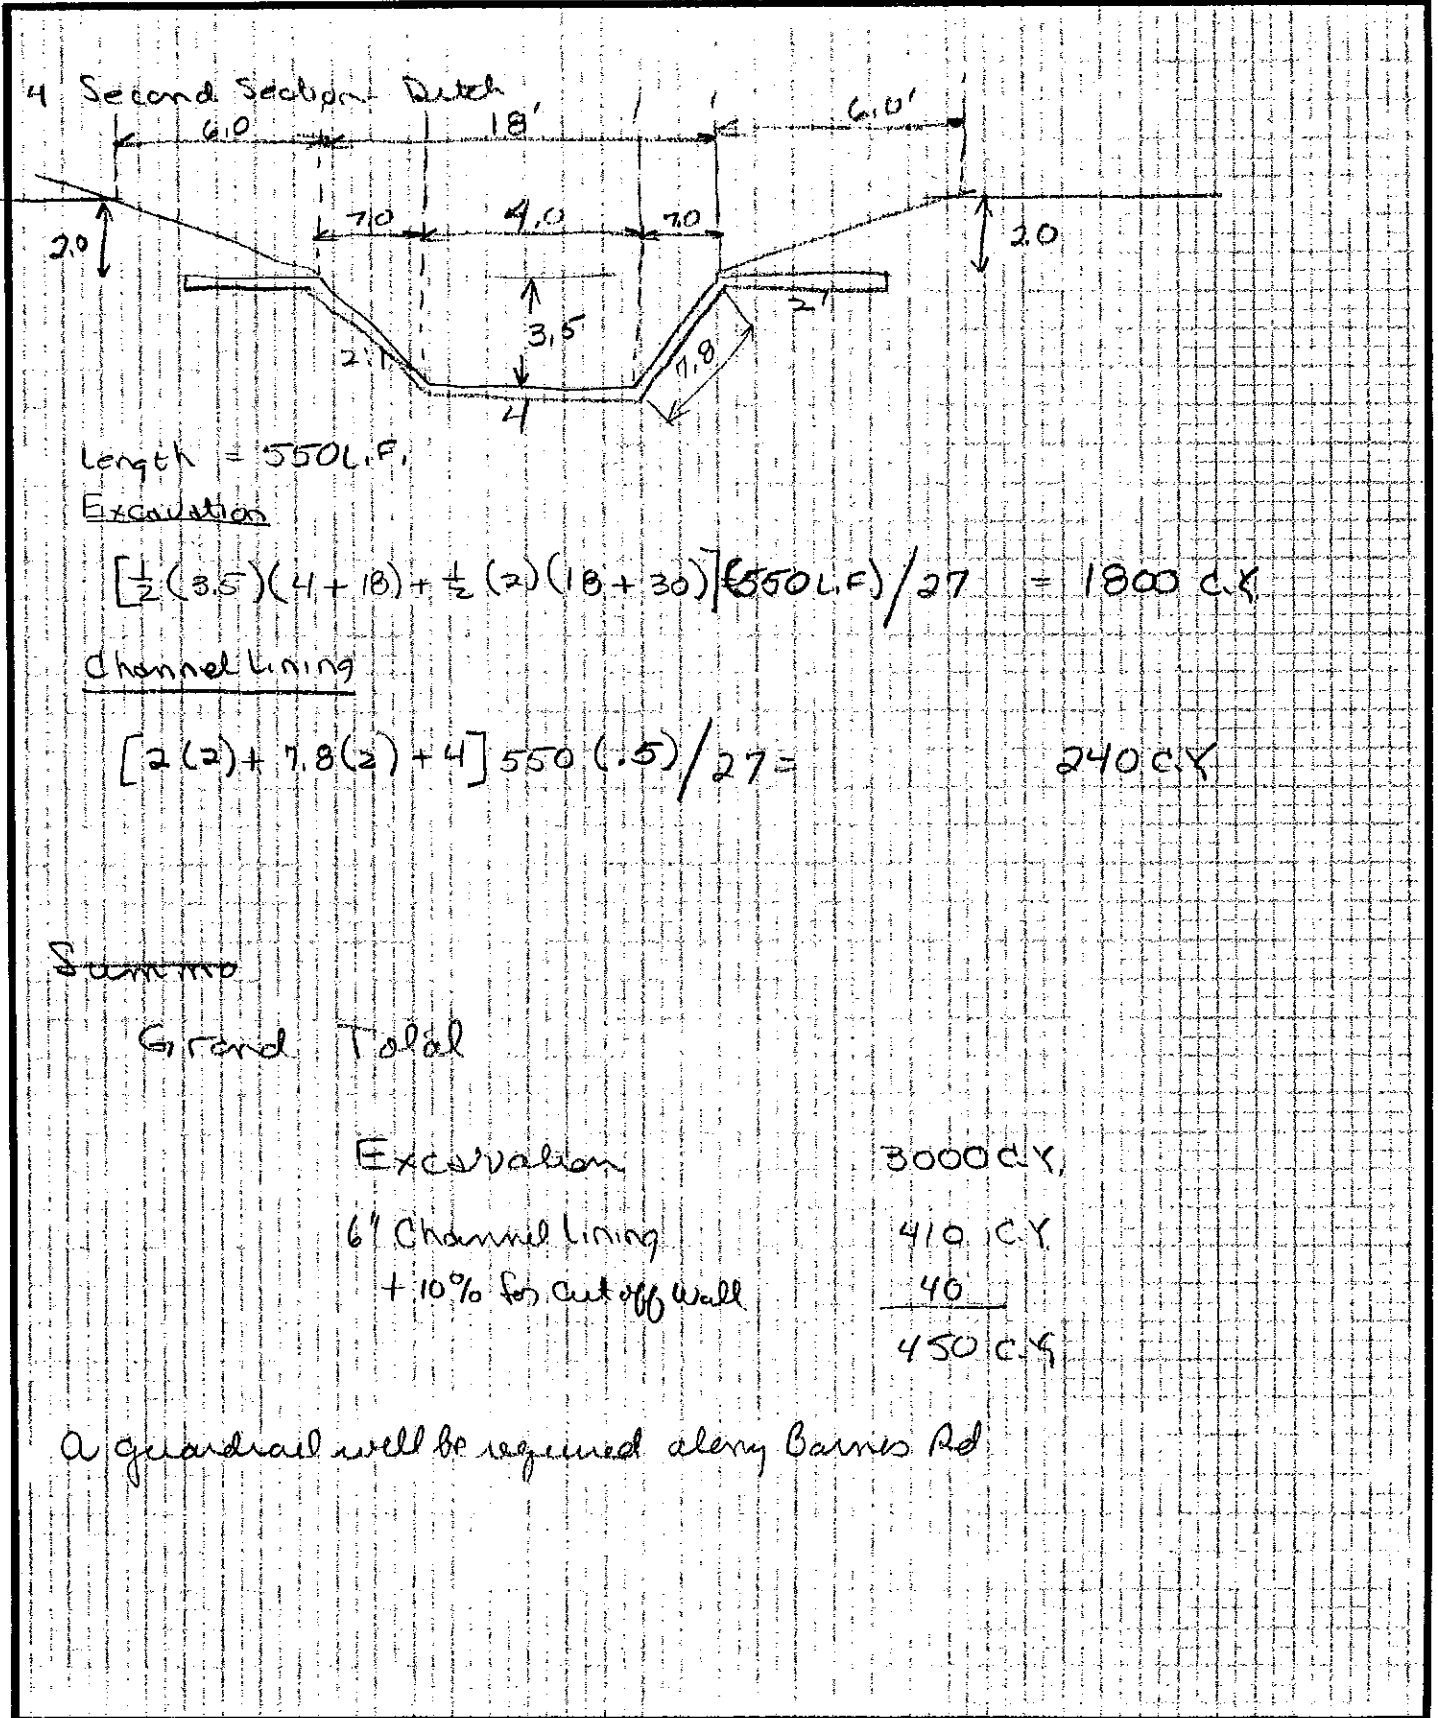 4 Second Section Ditch
6.0 18' 6.0'
7.0 4.0 7.0
2.0 2.0
3.5 2'
2:1 7.8
4
Length = 550 L.F.
Excavation
[½(3.5)(4+18)+½(2)(18+30)](550 L.F)/27 = 1800 C.Y.
Channel Lining
[2(2)+7.8(2)+4]550(.5)/27= 240 C.Y.
Summa
Grand Total
Excavation 3000 C.Y.
6" Channel Lining 410 C.Y.
+10% for Cut off Wall 40
450 C.Y.
A guardrail will be required along Barnes Rd.